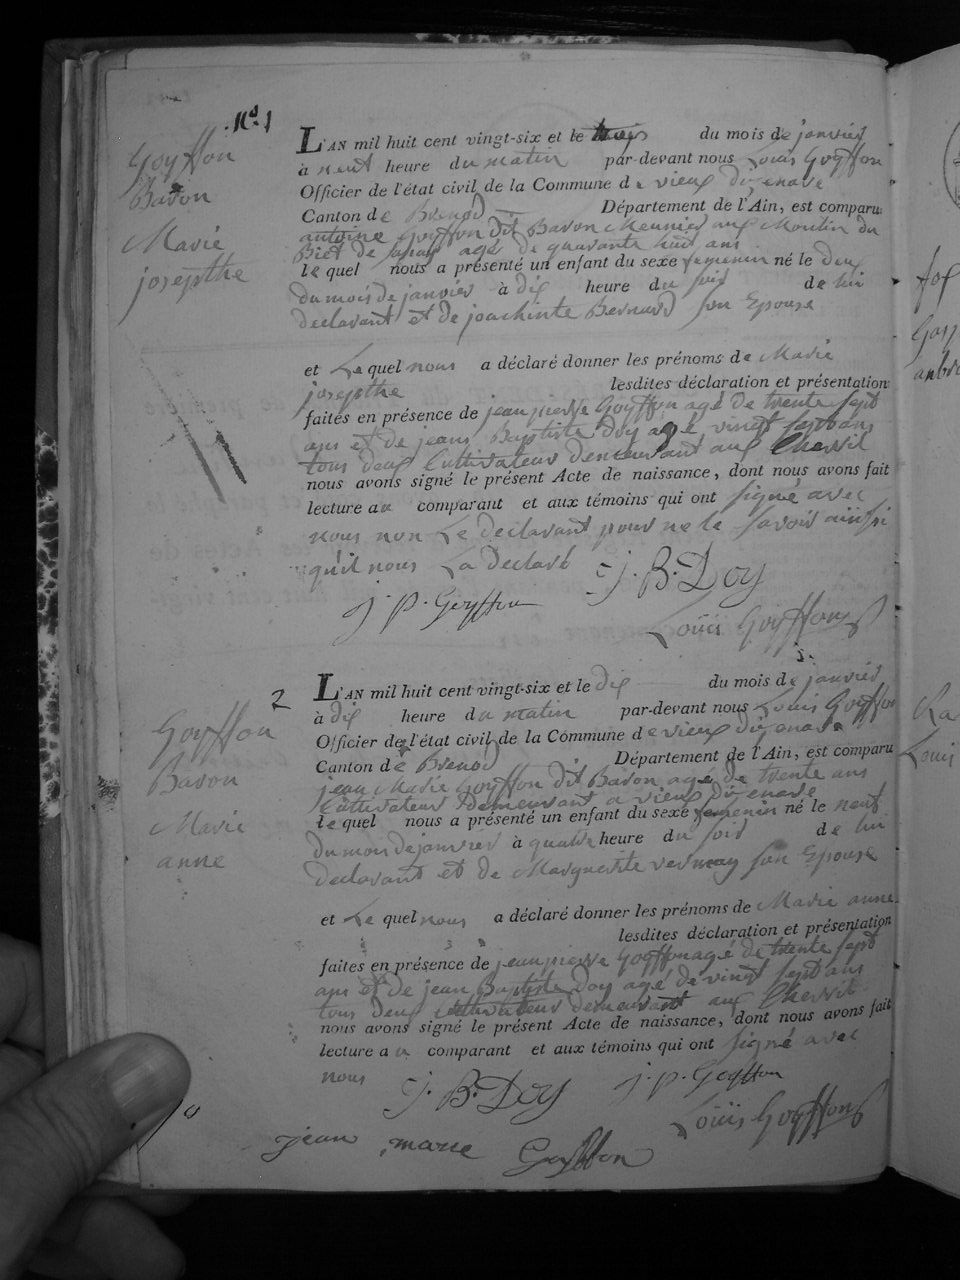 N.º 1
Goyffon
Baron
Marie
josepthe
L'AN mil huit cent vingt-six et le trois du mois de janvier
à neuf heure du matin par-devant nous Louis Goyffon
Officier de l'état civil de la Commune de vieux dizenave
Canton de Brenod Département de l'Ain, est comparu
antoine Goyffon dit Baron Meunier aux Moulin du
Biet de agé de quarante huit ans
lequel nous a présenté un enfant du sexe femenin né le deux
du mois de janvier à dix heure du soir de lui
declarant et de joachinte Bernard son Epouse
et Lequel nous a déclaré donner les prénoms de Marie
josepthe lesdites déclaration et présentation
faites en présence de jean pierre Goyffon agé de trente sept
ans et de jean Baptiste Doy agé vingt sept ans
tous deux Cultivateur demeurant aux
nous avons signé le présent Acte de naissance, dont nous avons fait
lecture au comparant et aux témoins qui ont signé avec
nous non Le declarant pour ne le savoir ainsi
qu'il nous La declaré
J. B. Doy
j. p. Goyffon
Louis Goyffon
2
Goyffon
Baron
Marie
anne
L'AN mil huit cent vingt-six et le dix du mois de janvier
à dix heure du matin par-devant nous Louis Goyffon
Officier de l'état civil de la Commune de vieux dizenave
Canton de Brenod Département de l'Ain, est comparu
jean Marie Goyffon dit Baron agé de trente ans
Cultivateur demeurant a vieux dizenave
lequel nous a présenté un enfant du sexe femenin né le neuf
du mois de janvier à quatre heure du soir de lui
declarant et de Marguerite vernay son Epouse
et Lequel nous a déclaré donner les prénoms de Marie anne
lesdites déclaration et présentation
faites en présence de jean pierre Goyffon agé de trente sept
ans et de jean Baptiste Doy agé de vingt sept ans
tous deux Cultivateur demeurant aux
nous avons signé le présent Acte de naissance, dont nous avons fait
lecture au comparant et aux témoins qui ont signé avec
nous
J. B. Doy j. p. Goyffon
Louis Goyffon
jean marie Goyffon